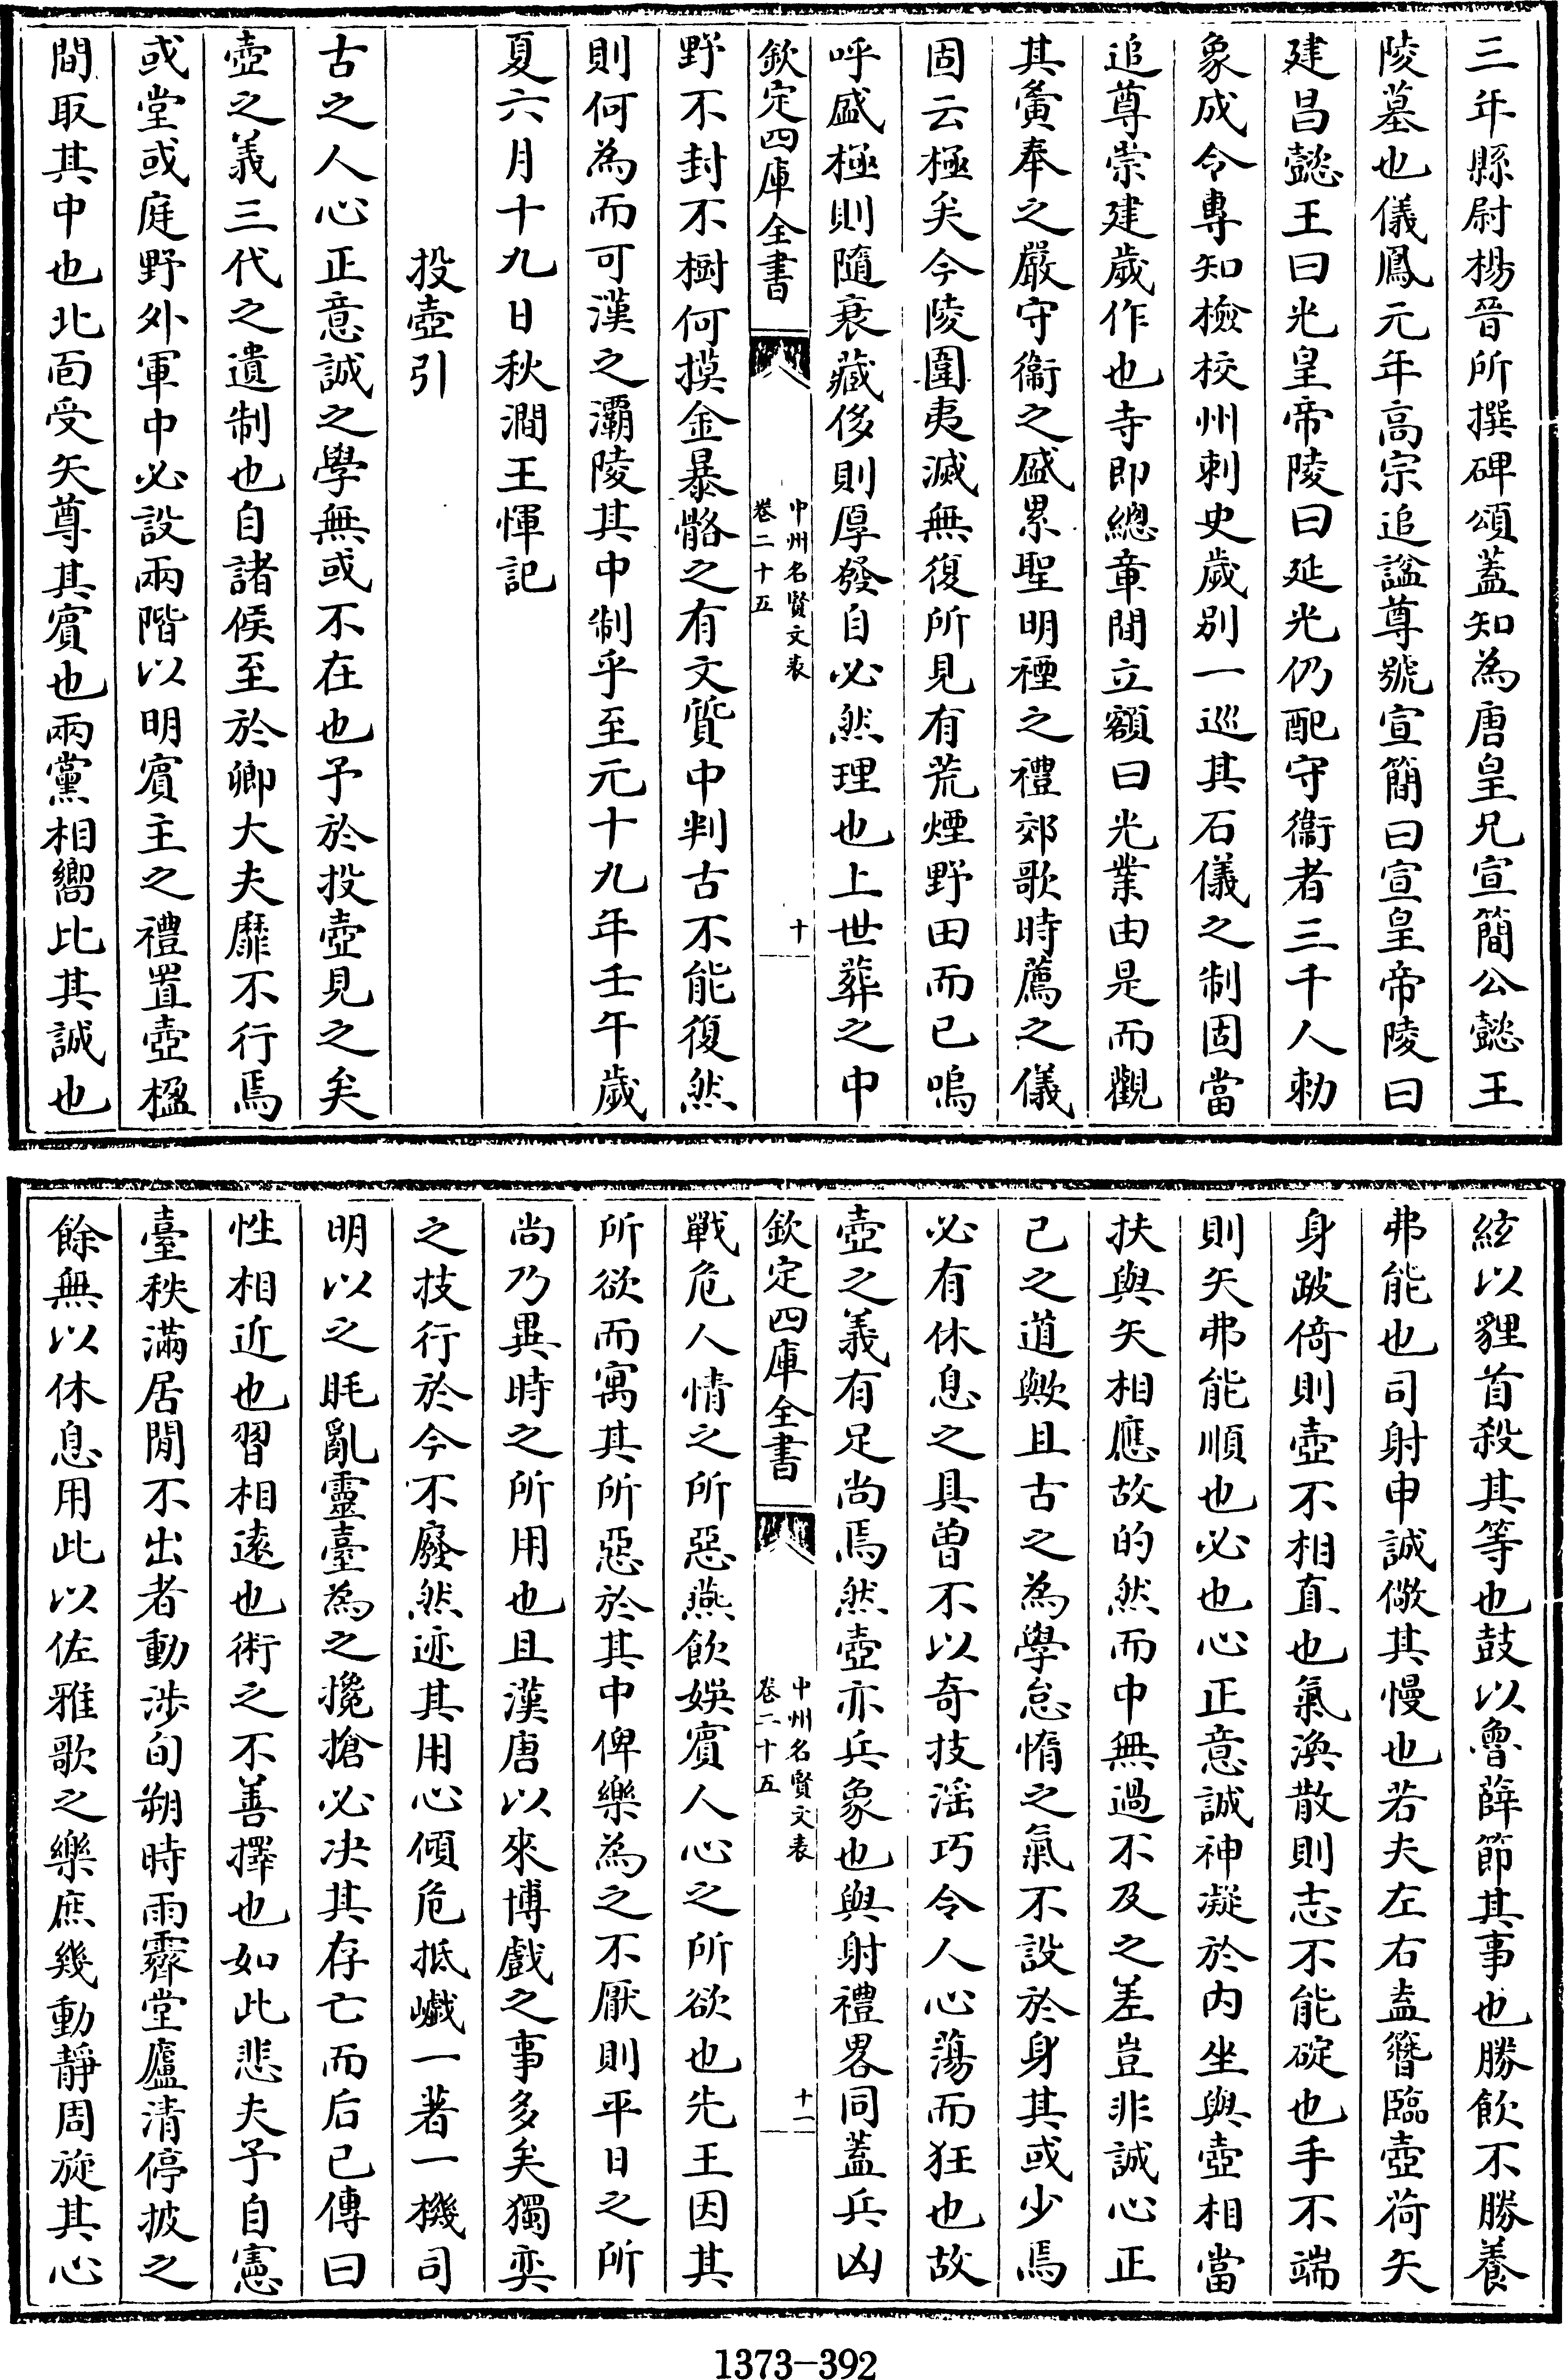 三年縣尉楊晉所撰碑頌蓋知為唐皇兄宣簡公懿王
陵墓也儀鳳元年高宗追諡尊號宣簡曰宣皇帝陵曰
建昌懿王曰光皇帝陵曰延光仍配守衛者三千人勅
象成令專知檢校州刺史歲别一巡其石儀之制固當
追尊崇建歲作也寺即總章間立額曰光業由是而觀
其黌奉之嚴守衛之盛累聖明禋之禮郊歌時薦之儀
固云極矣今陵圍夷滅無復所見有荒煙野田而已嗚
呼盛極則隨衰藏侈則厚發自必然理也上世葬之中
欽定四庫全書
中州名賢文表
卷二十五
十
野不封不樹何摸金暴骼之有文質中判古不能復然
則何為而可漢之灞陵其中制乎至元十九年壬午歲
夏六月十九日秋澗王惲記
投壺引
古之人心正意誠之學無或不在也予於投壺見之矣
壺之義三代之遺制也自諸侯至於卿大夫靡不行焉
或堂或庭野外軍中必設兩階以明賓主之禮置壺楹
間取其中也北面受矢尊其賓也兩黨相嚮比其誠也
絃以貍首殺其等也鼓以魯薛節其事也勝飲不勝養
弗能也司射申誠儆其慢也若夫左右盍簪臨壺荷矢
身跛倚則壺不相直也氣渙散則志不能碇也手不端
則矢弗能順也必也心正意誠神凝於内坐與壺相當
扶與矢相應故的然而中無過不及之差豈非誠心正
己之道歟且古之為學怠惰之氣不設於身其或少焉
必有休息之具曾不以奇技淫巧令人心蕩而狂也故
壺之義有足尚焉然壺亦兵象也與射禮畧同蓋兵凶
欽定四庫全書
中州名賢文表
卷二十五
十一
戰危人情之所惡燕飲娛賓人心之所欲也先王因其
所欲而寓其所惡於其中俾樂為之不厭則平日之所
尚乃異時之所用也且漢唐以來博戲之事多矣獨奕
之技行於今不廢然迹其用心傾危抵巇一著一機司
明以之眊亂靈臺為之攙搶必决其存亡而后已傳曰
性相近也習相遠也術之不善擇也如此悲夫予自憲
臺秩滿居閒不出者動涉旬朔時雨霽堂廬清停披之
餘無以休息用此以佐雅歌之樂庶幾動靜周旋其心
1373-392